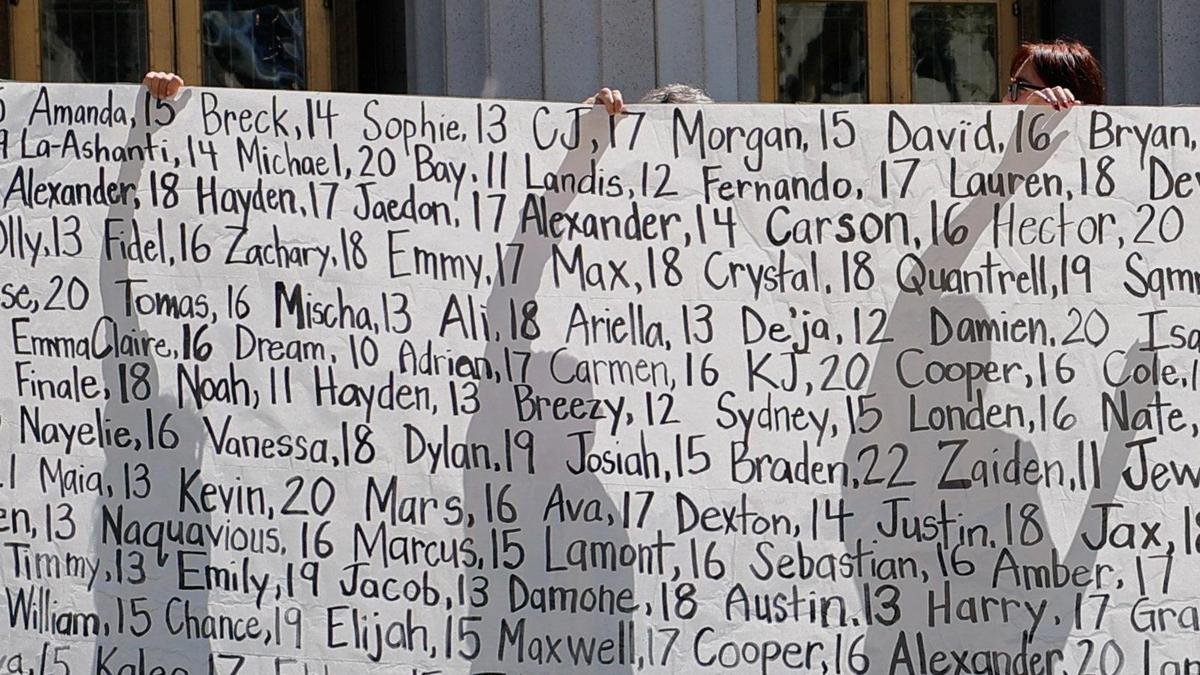 Amanda, 15 Breck, 14 Sophie, 13 CJ, 17 Morgan, 15 David, 16 Bryan,
La-Ashanti, 14 Michael, 20 Bay, 11 Landis, 12 Fernando, 17 Lauren, 18
Alexander, 18 Hayden, 17 Jaedon, 17 Alexander, 14 Carson, 16 Hector, 20
olly, 13 Fidel, 16 Zachary, 18 Emmy, 17 Max, 18 Crystal, 18 Quantrell, 19
se, 20 Tomas, 16 Mischa, 13 Ali, 18 Ariella, 13 De'ja, 12 Damien, 20 Isa
EmmaClaire, 16 Dream, 10 Adrian, 17 Carmen, 16 KJ, 20 Cooper, 16 Cole, 1
Finale, 18 Noah, 11 Hayden, 13 Breezy, 12 Sydney, 15 Londen, 16 Nate,
Nayelie, 16 Vanessa, 18 Dylan, 19 Josiah, 15 Braden, 22 Zaiden, 11 Jew
Maia, 13 Kevin, 20 Mars, 16 Ava, 17 Dexton, 14 Justin, 18 Jax, 1
en, 13 Naquavious, 16 Marcus, 15 Lamont, 16 Sebastian, 16 Amber, 17
Timmy, 13 Emily, 19 Jacob, 13 Damone, 18 Austin, 13 Harry, 17 Gra
William, 15 Chance, 19 Elijah, 15 Maxwell, 17 Cooper, 16 Alexander, 20
a, 15 Kaleo 17